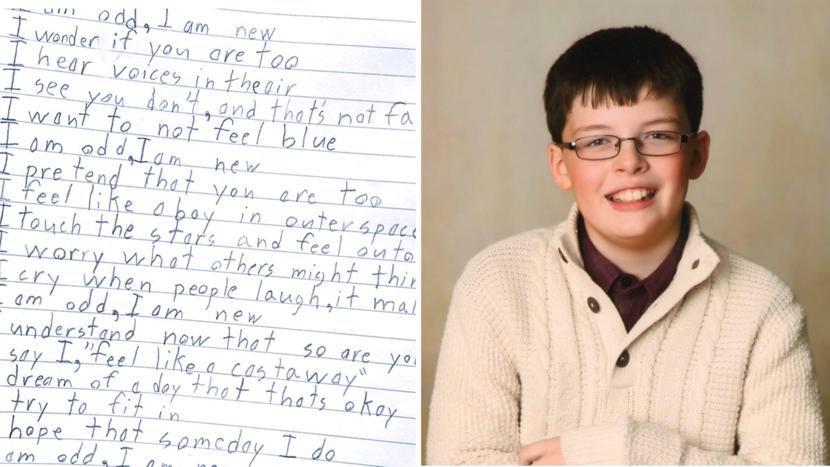 I am odd, I am new
I wonder if you are too
I hear voices in the air
I see you don't, and that's not fa
I want to not feel blue
I am odd, I am new
I pretend that you are too
I feel like a boy in outerspace
I touch the stars and feel outo
I worry what others might thin
I cry when people laugh, it mak
I am odd, I am new
understand now that so are yo
say I, "feel like a castaway"
dream of a day that thats okay
try to fit in
hope that someday I do
am odd, I am new